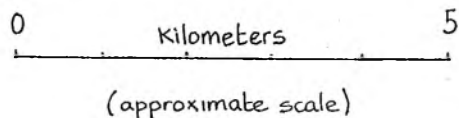 0 Kilometers 5
(approximate scale)